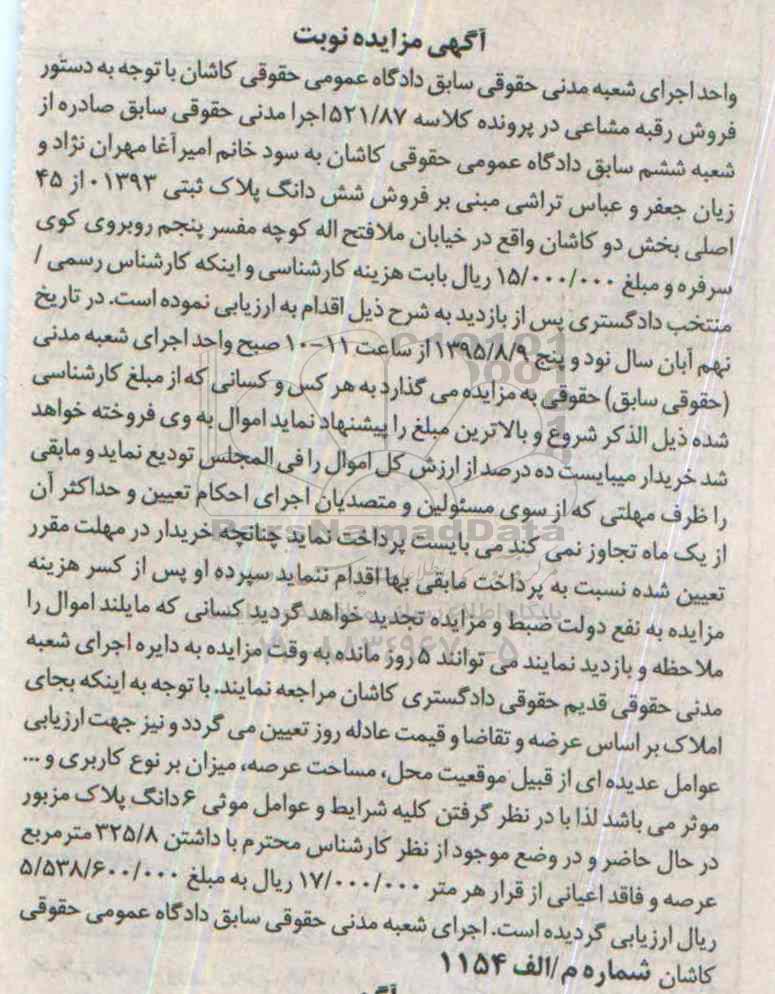 آگهی مزایده نوبت
واحد اجرای شعبه مدنی حقوقی سابق دادگاه عمومی حقوقی کاشان با توجه به دستور
فروش رقبه مشاعی در پرونده کلاسه ۵۲۱/۸۷ اجرا مدنی حقوقی سابق صادره از
شعبه ششم سابق دادگاه عمومی حقوقی کاشان به سود خانم امیرآغا مهران نژاد و
زیان جعفر و عباس تراشی مبنی بر فروش شش دانگ پلاک ثبتی ۰۱۳۹۳ از ۴۵
اصلی بخش دو کاشان واقع در خیابان ملافتح اله کوچه مفسر پنجم روبروی کوی
سرفره و مبلغ ۱۵/۰۰۰/۰۰۰ ریال بابت هزینه کارشناسی و اینکه کارشناس رسمی /
منتخب دادگستری پس از بازدید به شرح ذیل اقدام به ارزیابی نموده است. در تاریخ
نهم آبان سال نود و پنج ۱۳۹۵/۸/۹ از ساعت ۱۱-۱۰ صبح واحد اجرای شعبه مدنی
(حقوقی سابق) حقوقی به مزایده می گذارد به هر کس و کسانی که از مبلغ کارشناسی
شده ذیل الذکر شروع و بالاترین مبلغ را پیشنهاد نماید اموال به وی فروخته خواهد
شد خریدار میبایست ده درصد از ارزش کل اموال را فی المجلس تودیع نماید و مابقی
را ظرف مهلتی که از سوی مسئولین و متصدیان اجرای احکام تعیین و حداکثر آن
از یک ماه تجاوز نمی کند می بایست پرداخت نماید چنانچه خریدار در مهلت مقرر
تعیین شده نسبت به پرداخت مابقی بها اقدام ننماید سپرده او پس از کسر هزینه
مزایده به نفع دولت ضبط و مزایده تجدید خواهد گردید کسانی که مایلند اموال را
ملاحظه و بازدید نمایند می توانند ۵ روز مانده به وقت مزایده به دایره اجرای شعبه
مدنی حقوقی قدیم حقوقی دادگستری کاشان مراجعه نمایند. با توجه به اینکه بجای
املاک بر اساس عرضه و تقاضا و قیمت عادله روز تعیین می گردد و نیز جهت ارزیابی
عوامل عدیده ای از قبیل موقعیت محل، مساحت عرصه، میزان بر نوع کاربری و ...
موثر می باشد لذا با در نظر گرفتن کلیه شرایط و عوامل موثی ۶ دانگ پلاک مزبور
در حال حاضر و در وضع موجود از نظر کارشناس محترم با داشتن ۳۲۵/۸ مترمربع
عرصه و فاقد اعیانی از قرار هر متر ۱۷/۰۰۰/۰۰۰ ریال به مبلغ ۵/۵۳۸/۶۰۰/۰۰۰
ریال ارزیابی گردیده است. اجرای شعبه مدنی حقوقی سابق دادگاه عمومی حقوقی
کاشان شماره م/الف ۱۱۵۴
ParsNamadData